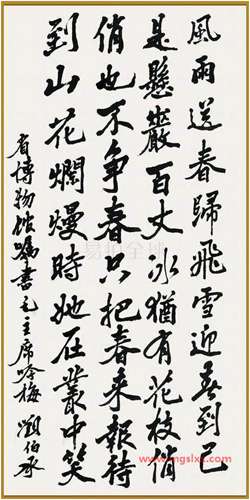 風雨送春歸飛雪迎春到已
是懸巖百丈冰猶有花枝俏
俏也不爭春只把春來報待
到山花爛熳時她在叢中笑
省博物馆嘱書毛主席咏梅 劉伯承
易拍全球